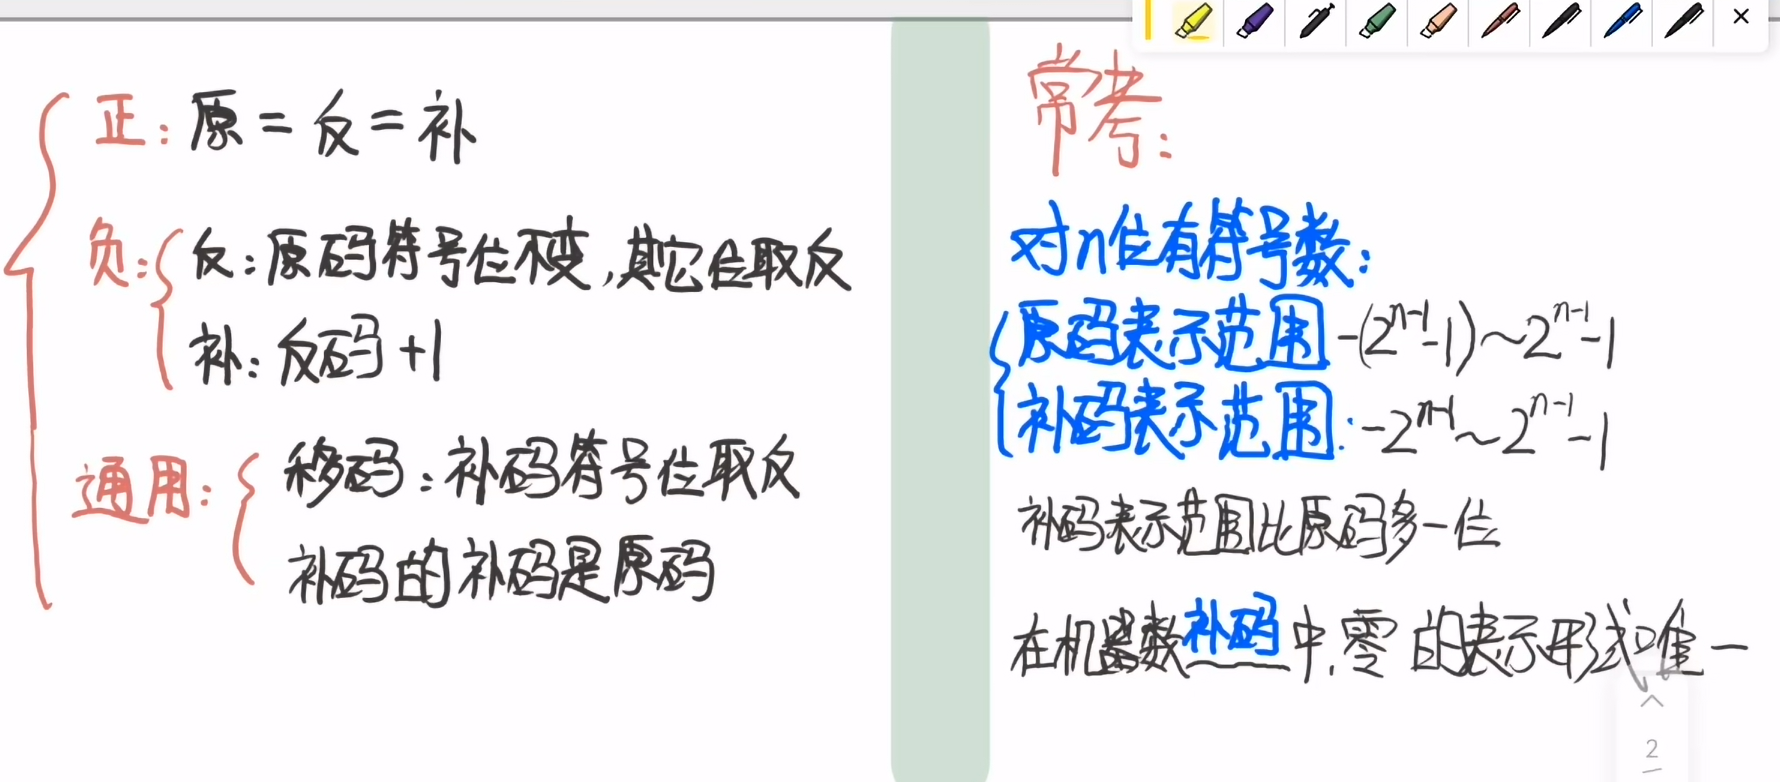 正：原 = 反 = 补
负：
反：原码符号位不变，其它位取反
补：反码 +1
通用：
移码：补码符号位取反
补码的补码是原码
常考：
对n位有符号数：
原码表示范围 -(2^{n-1}-1)～2^{n-1}-1
补码表示范围：-2^{n-1}～2^{n-1}-1
补码表示范围比原码多一位
在机器数补码中，零的表示形式唯一
2